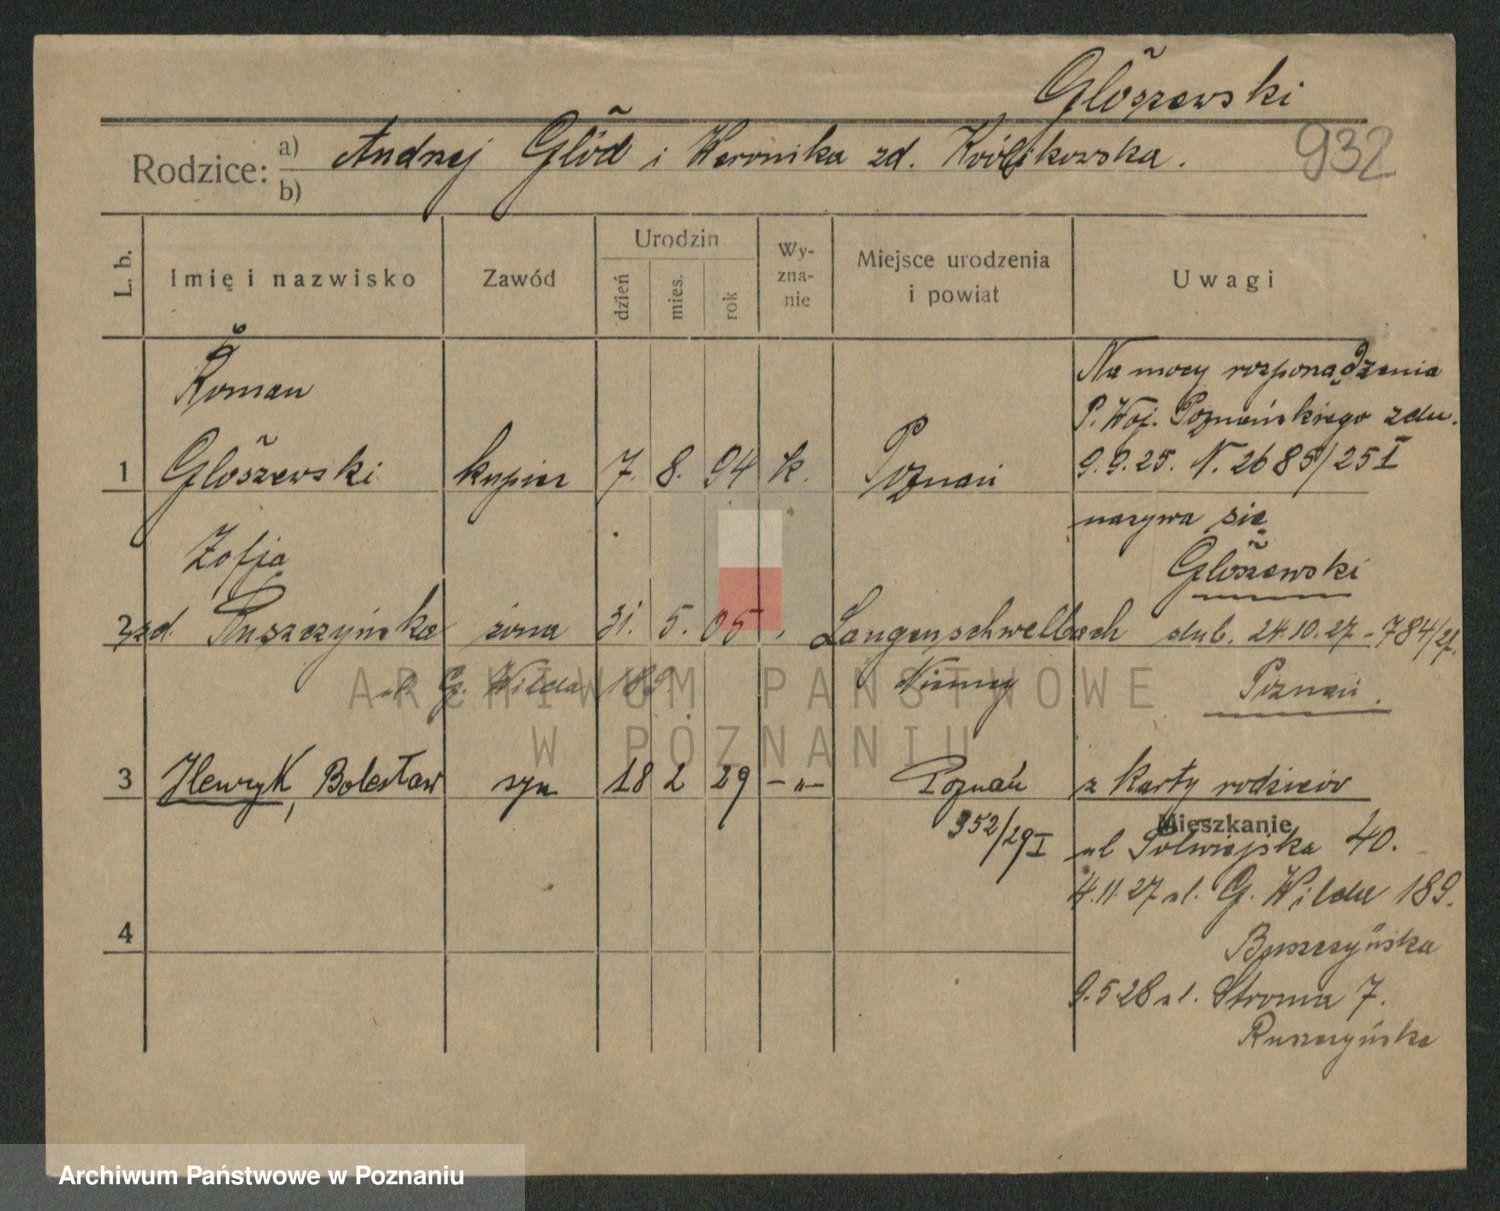 Glõszewski
932
Rodzice: a) Andrzej Glõd i Weronika zd. Królikowska.
b)
L. b.
Imię i nazwisko
Zawód
Urodzin
dzień
mies.
rok
Wy-
zna-
nie
Miejsce urodzenia
i powiat
Uwagi
Roman
1 Glõszewski kupiec 7. 8. 94 k. Poznań
Na mocy rozporządzenia
P. Woj. Poznańskiego zdn.
9.9.25. N. 2685/25 I
nazywa się
Glõszewski
Zofja
2 zd. Ruszczyńska żona 31. 5. 05 Langenschwelbach ślub. 24.10.27 - 784/27.
ul. G. Wilda 189 Niemcy Poznań.
3 Henryk, Bolesław syn 18 2 29 -"- Poznań z karty rodziców
952/29 I
Mieszkanie
ul Półwiejska 40.
4.11.27 ul. G. Wilda 189.
4
Ruszczyńska
9.5.28 ul. Stroma 7.
Ruszczyńska
ARCHIWUM PAŃSTWOWE
W POZNANIU
Archiwum Państwowe w Poznaniu